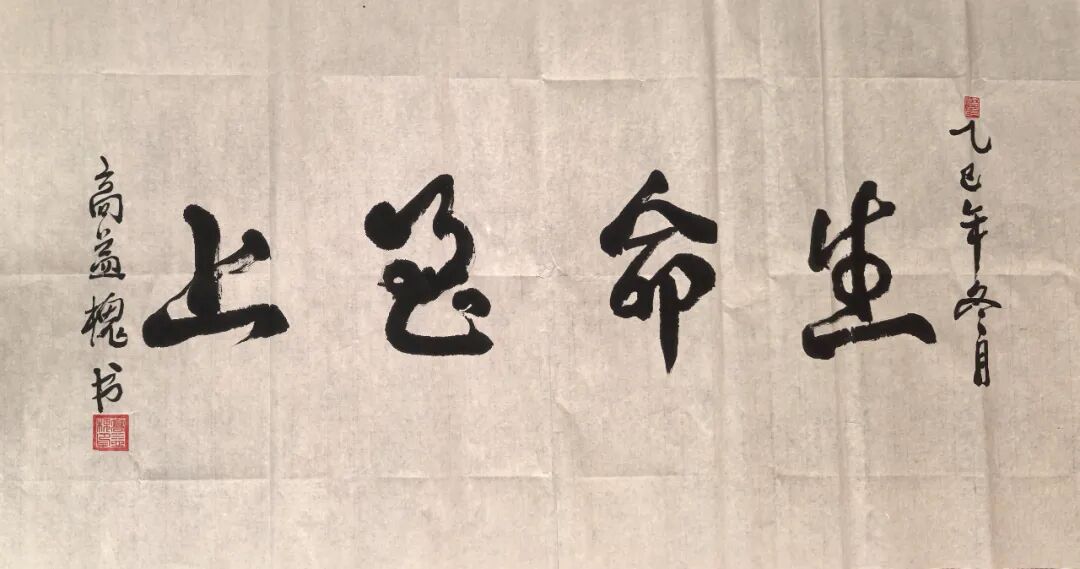 乙巳年冬月
生命至上
高益槐书